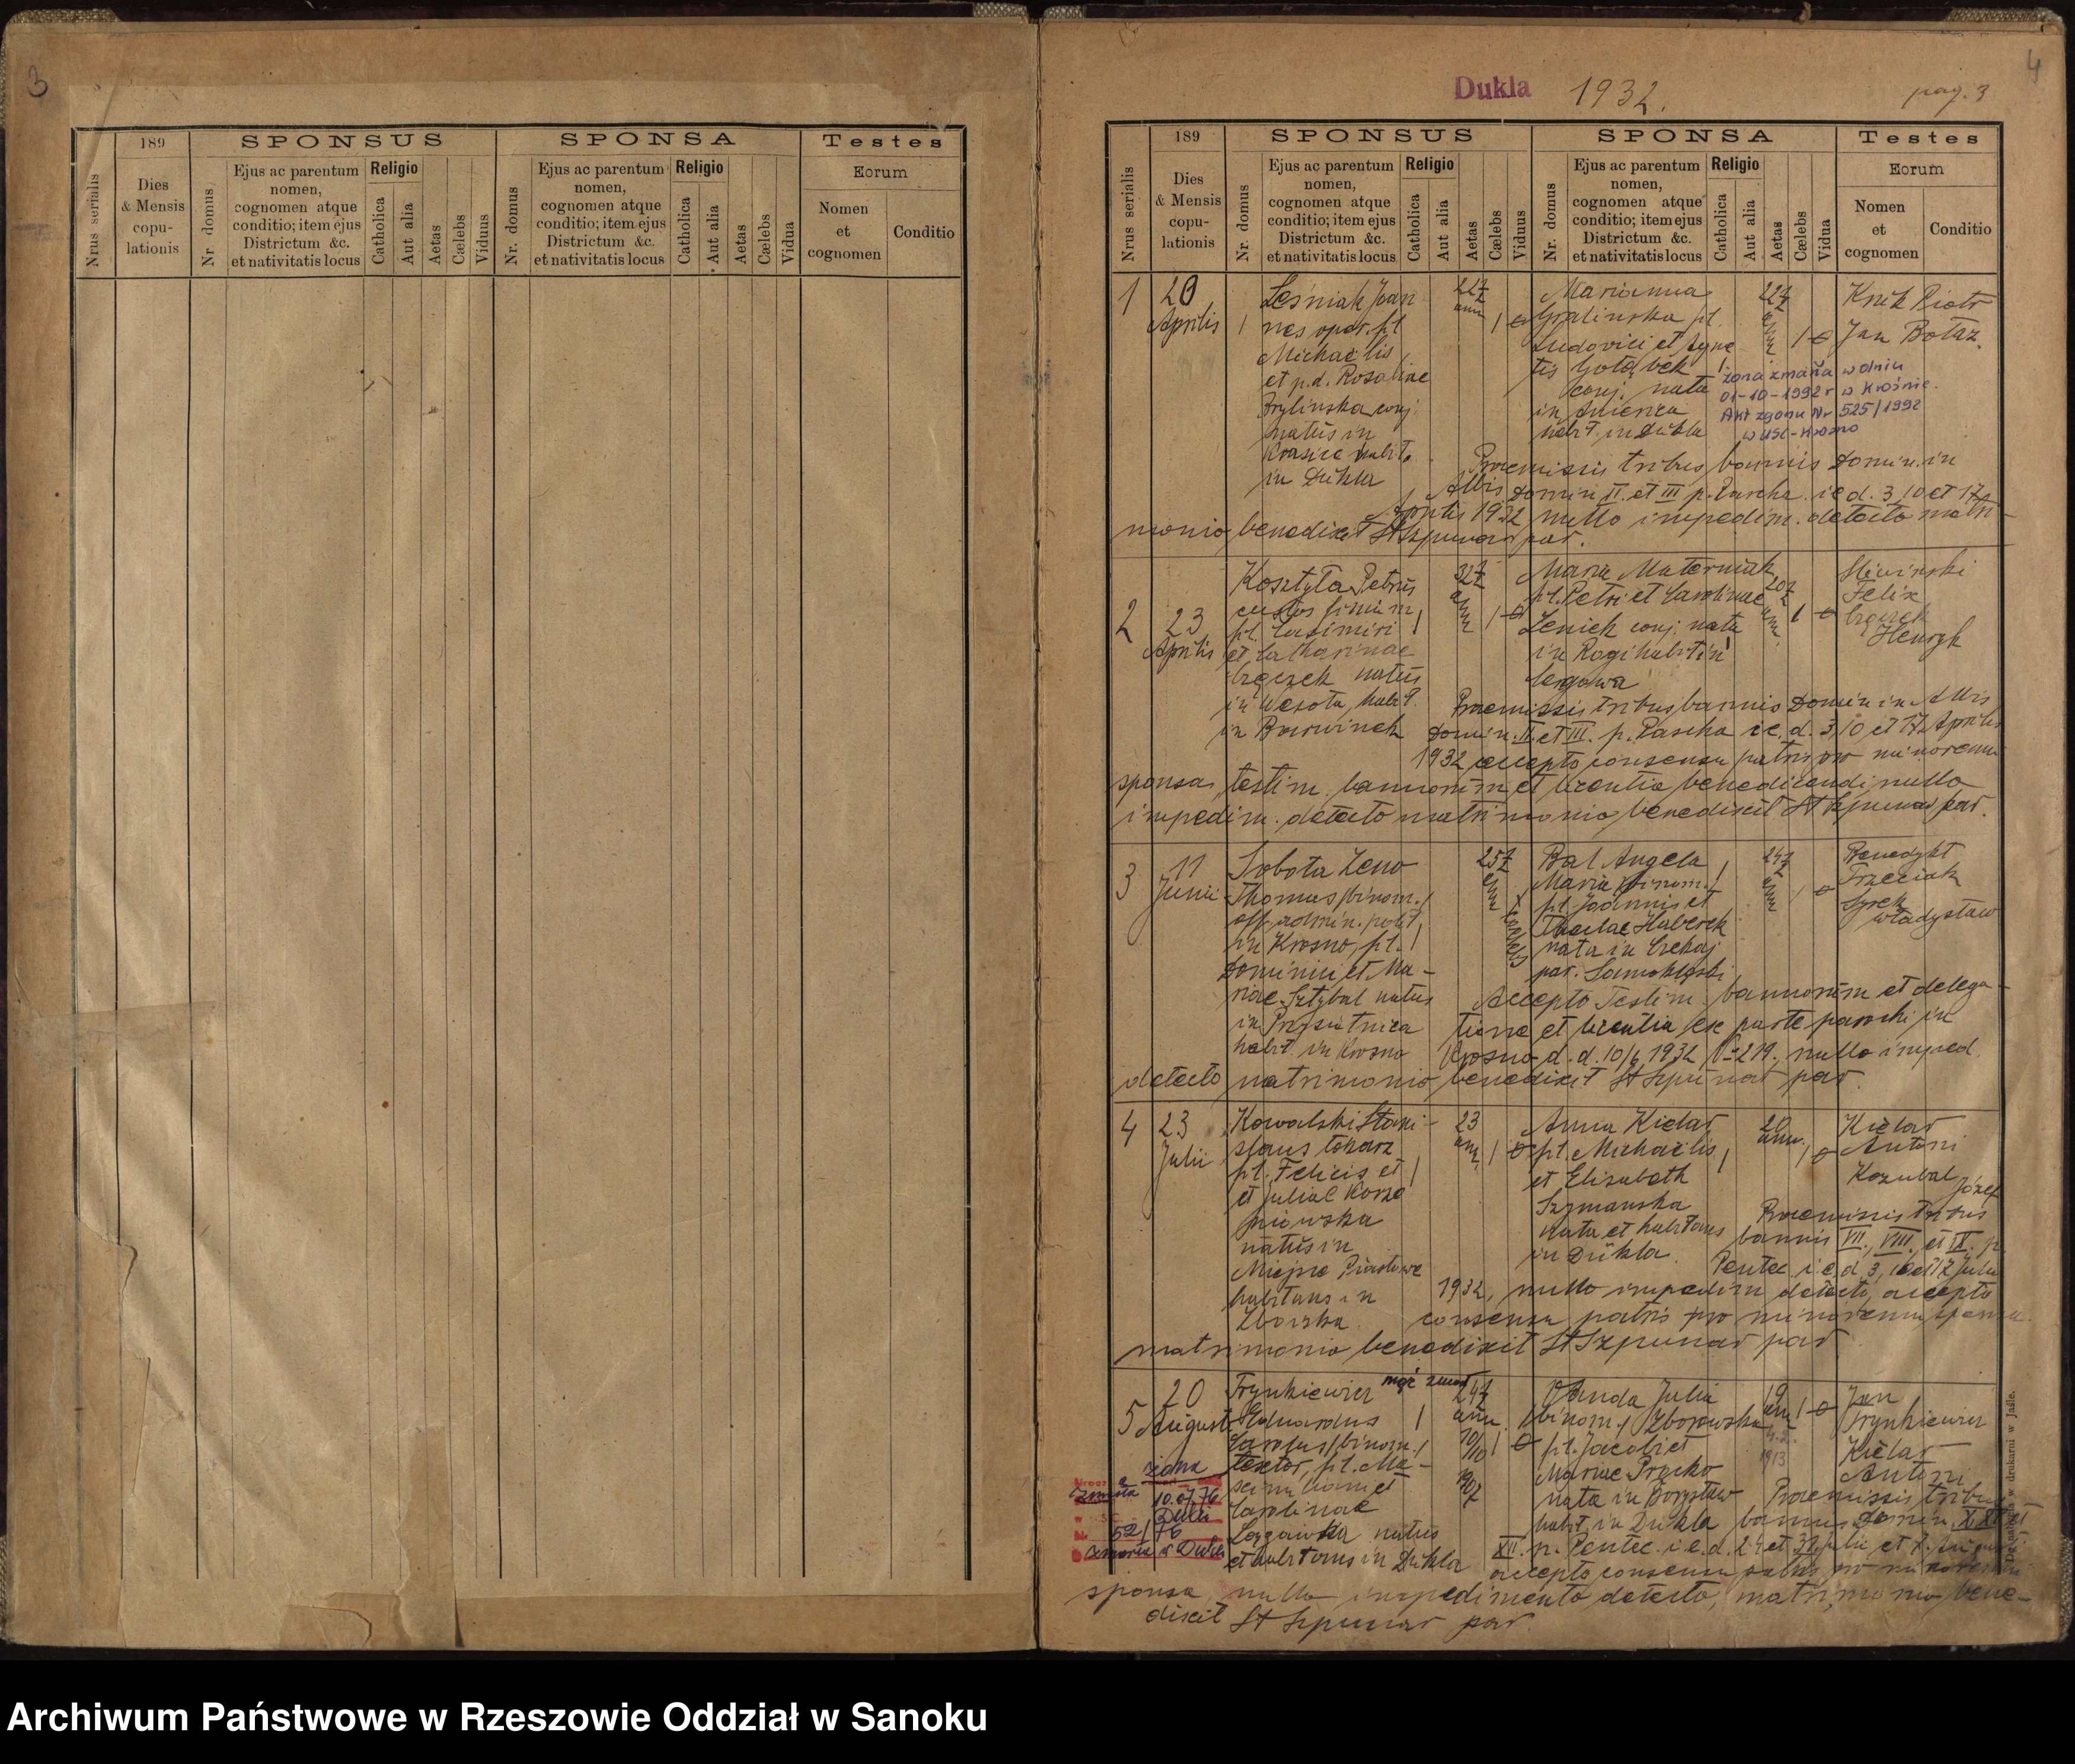 3
189
SPONSUS
SPONSA
Testes
Nrus serialis
Dies
& Mensis
copu-
lationis
Nr. domus
Ejus ac parentum
nomen,
cognomen atque
conditio; item ejus
Districtum &c.
et nativitatis locus
Religio
Catholica
Aut alia
Aetas
Cælebs
Viduus
Nr. domus
Ejus ac parentum
nomen,
cognomen atque
conditio; item ejus
Districtum &c.
et nativitatis locus
Religio
Catholica
Aut alia
Aetas
Cælebs
Vidua
Eorum
Nomen
et
cognomen
Conditio
4
Dukla 1932.
pag. 3
189
SPONSUS
SPONSA
Testes
Nrus serialis
Dies
& Mensis
copu-
lationis
Nr. domus
Ejus ac parentum
nomen,
cognomen atque
conditio; item ejus
Districtum &c.
et nativitatis locus
Religio
Catholica
Aut alia
Aetas
Cælebs
Viduus
Nr. domus
Ejus ac parentum
nomen,
cognomen atque
conditio; item ejus
Districtum &c.
et nativitatis locus
Religio
Catholica
Aut alia
Aetas
Cælebs
Vidua
Eorum
Nomen
et
cognomen
Conditio
1
20
Aprilis
Leśniak Joan
nes opar. fil
Michaëlis
et p.d. Rosaliae
Brylinska conj.
natus in
habit.
in Dukla
Marianna
Gralinska fil.
Ludovici et Agne
tis Gołąbek
conj. nata
in America
habit. in Dukla
Piotr
Jan Bołaz.
żona zmarła w dniu
01-10-1992 r w Krośnie.
Akt zgonu Nr 525/1992
w USC-Krosno
Praemissis tribus bannis Domin. in
Albis Domin II. et III p. Pascha i.e d. 3, 10 et 17
Aprilis 1932 nullo impedim. detecto matri-
monio benedixit St Szpunar par.
2
23
Aprilis
Kosztyła Petrus
custos finium
fil. Casimiri
et Catharinae
Czączek natus
in Wesoła, habit.
in Barwinek
32
Maria Materniak
fil. Petri et Carolinae
Zenick conj. nata
in Rogi habit in
Cergowa
Sliwinski
Felix
Henryk
Praemissis tribus bannis Domin in Albis
Domin. II. et III. p. Pascha i.e. d. 3, 10 et 17 Aprilis
1932 accepto consensu patris pro minorenni
sponsa, testim. bannorum et licentia benedicendi nullo
impedim. detecto matrimonio benedixit St Szpunar par.
3
11
Junii
Sobota Zeno
Thomas /binom./
off. admin. polit.
in Krosno, fil.
Dominici et Ma-
riae Sztybal natus
in Przysietnica
habit. in Krosno
25
Bal Angela
Maria /binom./
fil. Joannis et
Theclae Haberek
nata in Czekaj
par. Samoklęski
24
Benedykt
Trzeciak
Syrek
Władysław
Accepto Testim. bannorum et delega-
tione et licentia ex parte parochi in
Krosno d. d. 10/6 1932 N-219., nullo imped.
detecto matrimonio benedixit St Szpunar par.
4
23
Julii
Kowalski Stani-
slaus tokarz
fil. Felicis et
et Juliae Korze
niowska
natus in
Miejsce Piastowe
habitans in
Zboiska
23
Anna Kielar
fil. Michaëlis
et Elisabeth
Szymanska
nata et habitans
in Dukla.
20
ann.
Kielar
Antoni
Kozubal
Józef
Praemissis tribus
bannis VII., VIII., et IX. p.
Pentec i.e. d. 3, 10 et 17 Julii
1932, nullo impedim detecto, accepto
consensu patris pro minorenni sponsa
matrimonio benedixit St Szpunar par
5
20
Augusti
Frynkiewicz
Eduardus
Carolus /binom./
textor, fil. Ma-
ximiliani et
Carolinae
natus
et habitans in Dukla
mąż zmarł
24
ann.
10/10
Wanda Julia
/binom./ Zborowska
fil. Jacobi et
Mariae Pracko
nata in Borysław
habit. in Dukla
19
1913
Jan
Frynkiewicz
Kielar
Antoni
żona
zmarła 10.07.76
Dukla
52/76
zmarła w Dukli
Praemissis tribus
bannis Domin. X. XI et
XII. p. Pentec. i.e. d. 24 et 31 Julii et 7. Augusti
accepto consensu patris pro minorenni
sponsa, nullo impedimento detecto, matrimonio bene-
dixit St Szpunar par.
w drukarni w Jaśle.
Archiwum Państwowe w Rzeszowie Oddział w Sanoku